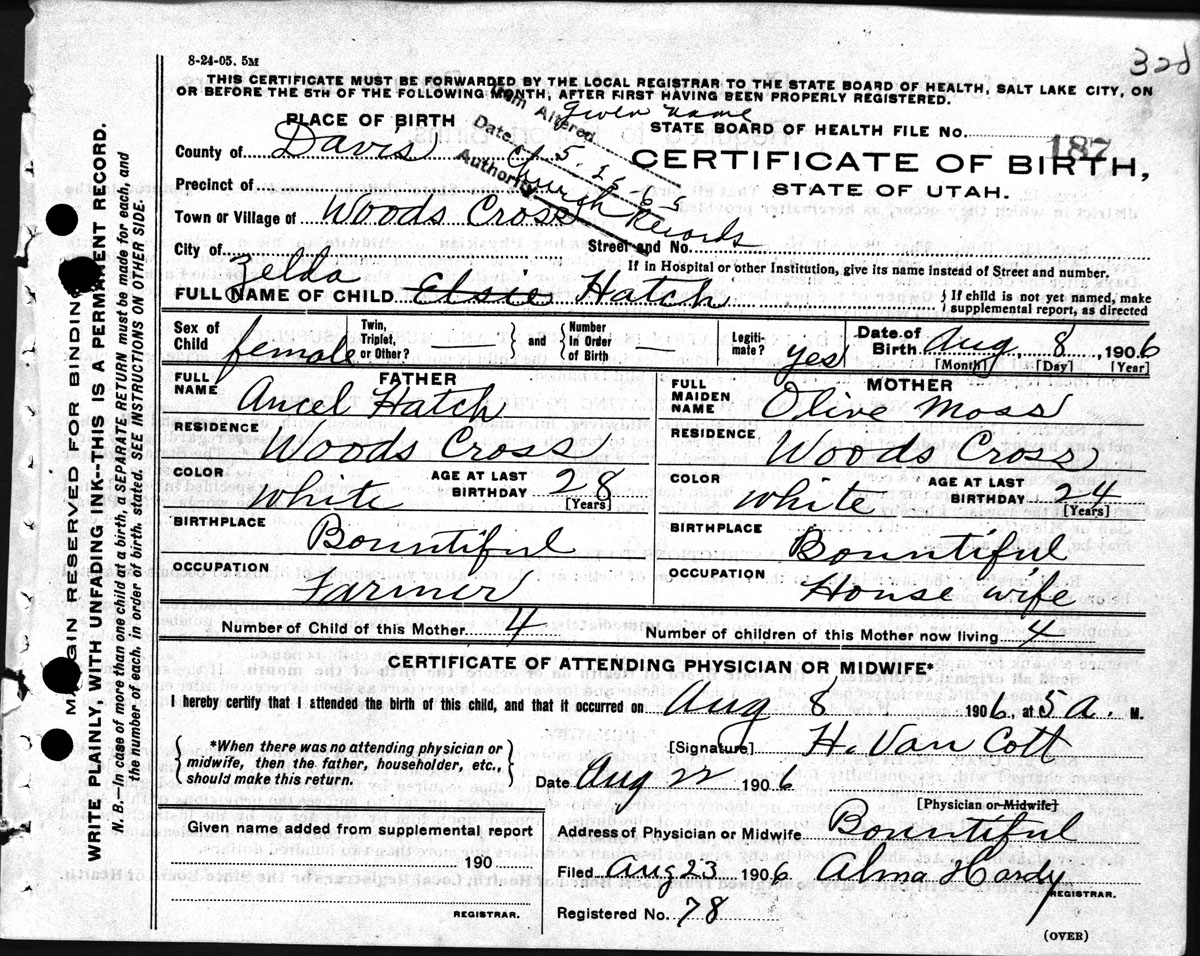 8-24-05. 5M
328
THIS CERTIFICATE MUST BE FORWARDED BY THE LOCAL REGISTRAR TO THE STATE BOARD OF HEALTH, SALT LAKE CITY, ON
OR BEFORE THE 5TH OF THE FOLLOWING MONTH, AFTER FIRST HAVING BEEN PROPERLY REGISTERED.
Item Altered given name
Date 5.
Authority Church Records
PLACE OF BIRTH
STATE BOARD OF HEALTH FILE No. 187
County of Davis
CERTIFICATE OF BIRTH,
STATE OF UTAH.
Precinct of
Town or Village of Woods Cross
Street and No.
City of
If in Hospital or other Institution, give its name instead of Street and number.
Zelda
FULL NAME OF CHILD Elsie Hatch
If child is not yet named, make
supplemental report, as directed
Sex of Child female
Twin, Triplet, or Other? — and Number In Order of Birth —
Legitimate? yes
Date of Birth Aug, 8, 1906
[Month] [Day] [Year]
FATHER
FULL NAME Ancel Hatch
RESIDENCE Woods Cross
COLOR White AGE AT LAST BIRTHDAY 28
[Years]
BIRTHPLACE Bountiful
OCCUPATION Farmer
MOTHER
FULL MAIDEN NAME Olive Moss
RESIDENCE Woods Cross
COLOR White AGE AT LAST BIRTHDAY 24
[Years]
BIRTHPLACE Bountiful
OCCUPATION House wife
Number of Child of this Mother 4 Number of children of this Mother now living 4
CERTIFICATE OF ATTENDING PHYSICIAN OR MIDWIFE*
I hereby certify that I attended the birth of this child, and that it occurred on Aug 8 1906, at 5 a. M.
*When there was no attending physician or
midwife, then the father, householder, etc.,
should make this return.
[Signature] H. Van Cott
Date Aug 22 1906
[Physician or Midwife]
Given name added from supplemental report
190
REGISTRAR.
Address of Physician or Midwife Bountiful
Filed Aug 23 1906 Alma Hardy
REGISTRAR.
Registered No. 78
(OVER)
MARGIN RESERVED FOR BINDING
WRITE PLAINLY, WITH UNFADING INK--THIS IS A PERMANENT RECORD.
N. B.—In case of more than one child at a birth, a SEPARATE RETURN must be made for each, and
the number of each. in order of birth. stated. SEE INSTRUCTIONS ON OTHER SIDE.